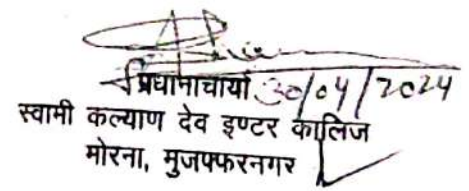 प्रधानाचार्या 30/04/2024
स्वामी कल्याण देव इण्टर कालिज
मोरना, मुजफ्फरनगर